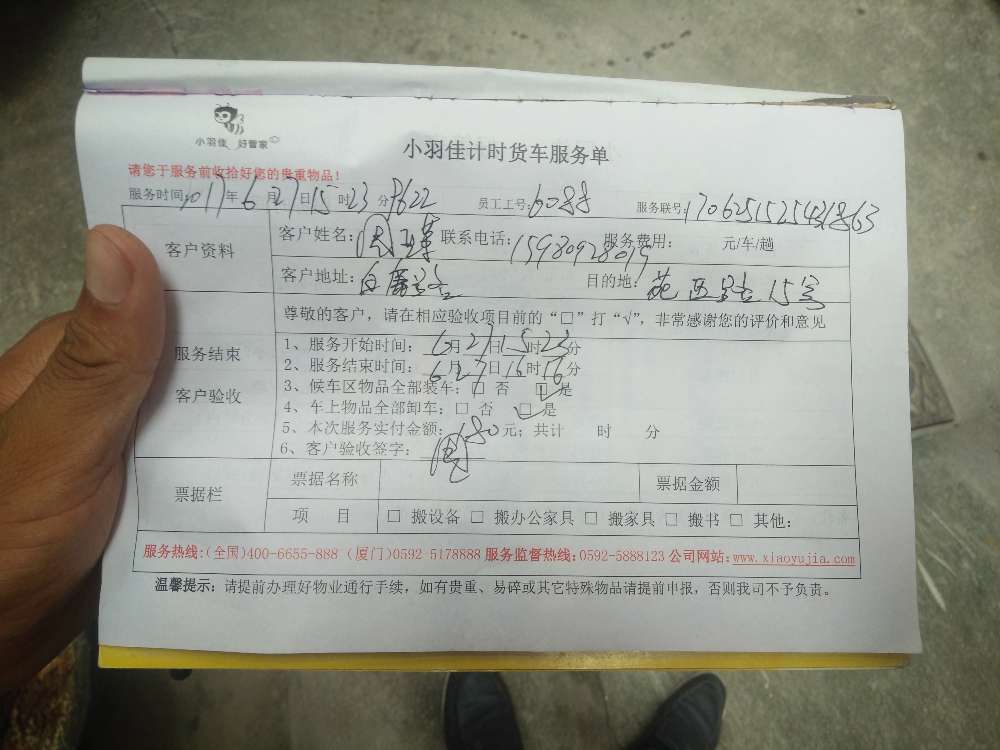 小羽佳 好管家
小羽佳计时货车服务单
请您于服务前收拾好您的贵重物品！
服务时间：2017年6月27日15时23分 员工工号：6088 服务联号：
客户资料
客户姓名： 联系电话： 服务费用： 元/车/趟
客户地址： 目的地： 15号
尊敬的客户，请在相应验收项目前的“□”打“√”，非常感谢您的评价和意见
服务结束
客户验收
1、服务开始时间：6月27日15时23分
2、服务结束时间：6月27日16时16分
3、候车区物品全部装车：□ 否 □ 是
4、车上物品全部卸车：□ 否 □ 是
5、本次服务实付金额：180元；共计 时 分
6、客户验收签字：
票据栏
票据名称 票据金额
项 目 □ 搬设备 □ 搬办公家具 □ 搬家具 □ 搬书 □ 其他：
服务热线:(全国)400-6655-888 (厦门)0592-5178888 服务监督热线:0592-5888123 公司网站:www.xiaoyujia.com
温馨提示：请提前办理好物业通行手续，如有贵重、易碎或其它特殊物品请提前申报，否则我司不予负责。